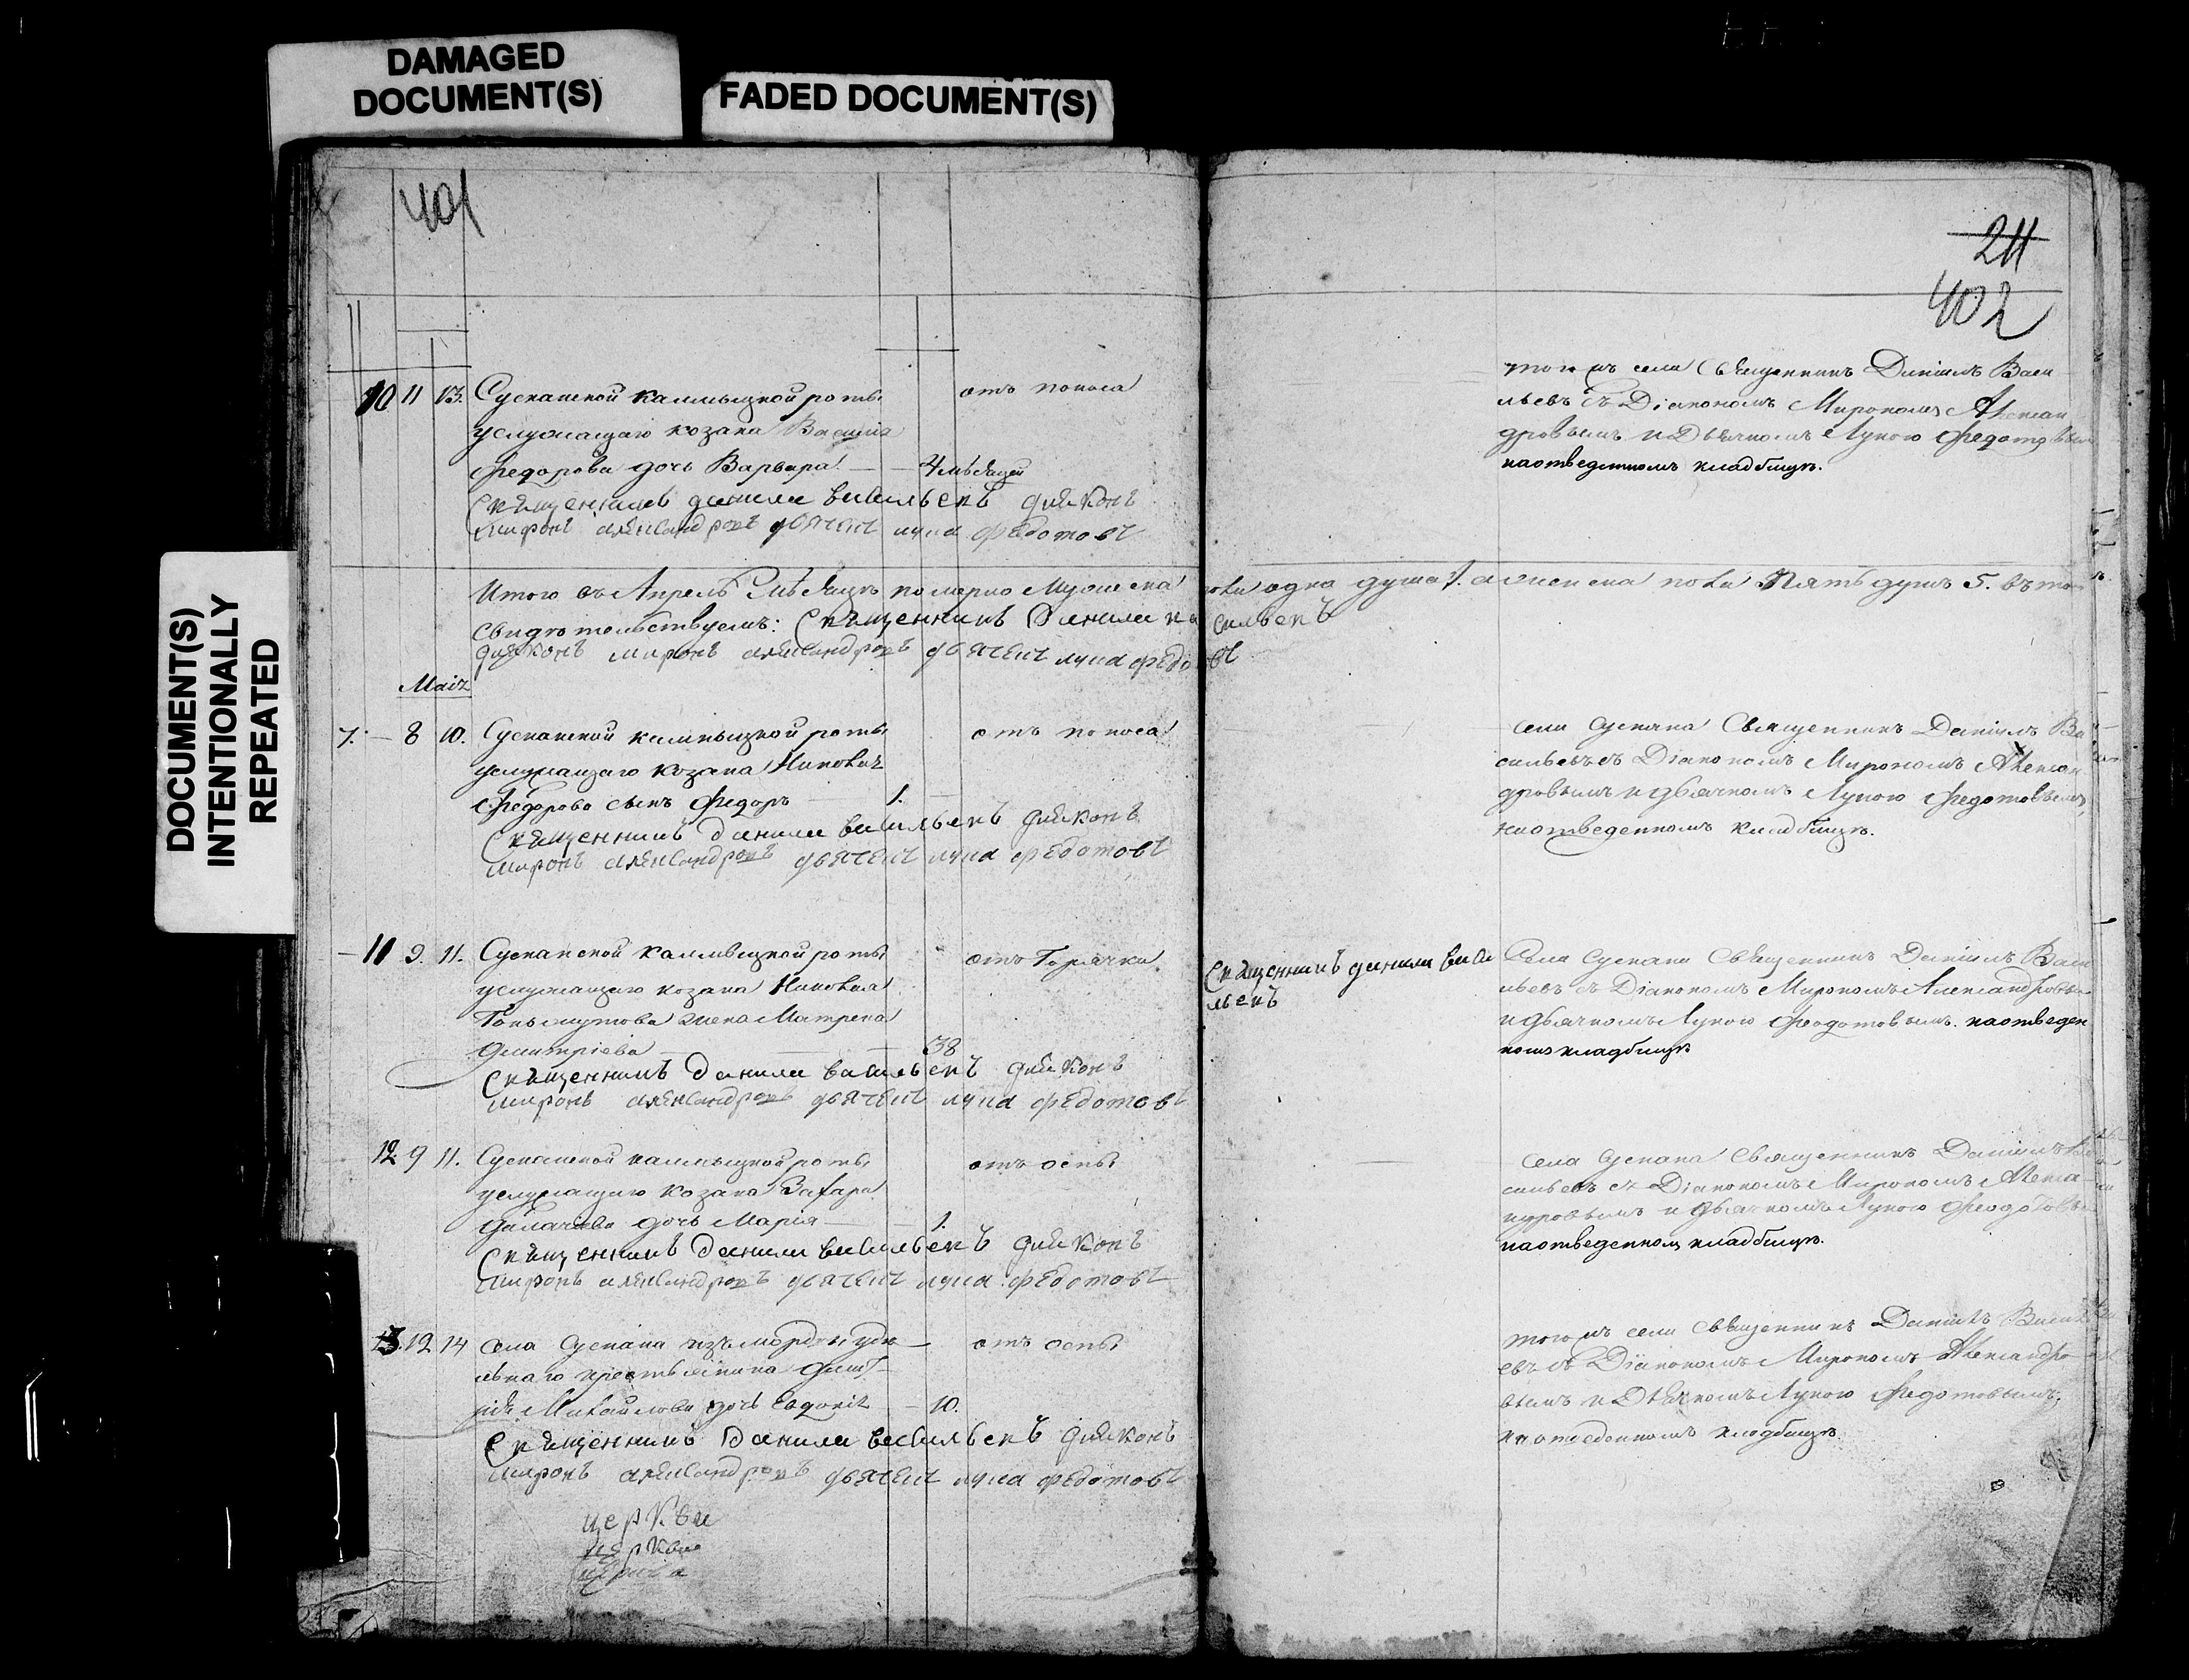 DAMAGED
DOCUMENT(S)
FADED DOCUMENT(S)
DOCUMENT(S)
INTENTIONALLY
REPEATED
401
211
402
10 11 13. Сусканской калмыцкой роты отъ поноса
услужащаго козака Василia
Федорова дочь Варвара — 4 мѣсяцей
Священникъ данила васильевъ диаконъ
миронъ александровъ дьячекъ лука федотовъ
того жъ села Священникъ Данiилъ Васи
льевъ съ Дiакономъ Мирономъ Алексан
дровымъ и Дьячкомъ Лукою Федотовым
на отведенномъ кладбищѣ.
Итого въ Апрелѣ мѣсяцѣ померло мужеска пола одна душа 1. а женска пола Пять душъ 5. въ том
свидѣтельствуемъ: Священникъ Данила васильевъ
диаконъ миронъ александровъ дьячекъ лука федотовъ
Маiя
7. — 8 10. Сусканской калмыцкой роты отъ поноса
услужащаго козака
Федорова сынъ Федоръ — 1. —
Священникъ данила васильевъ диаконъ
миронъ александровъ дьячекъ лука федотовъ
села Сускана Священникъ Данiилъ Ва
сильевъ съ Дiакономъ Мирономъ Алексан
дровымъ и дьячкомъ Лукою Федотовымъ,
на отведенномъ кладбищѣ.
— 11 9. 11. Сусканской калмыцкой роты отъ Горячки
услужащаго козака
жена Матрена
Дмитрiева — 38
Священникъ данила васильевъ диаконъ
миронъ александровъ дьячекъ лука федотовъ
Священникъ данила васи
льевъ
Села Сускана Священникъ Данiилъ Васи
льевъ съ Дiакономъ Мирономъ Александровы
и дьячкомъ Лукою Феодотовымъ. на отведен
номъ кладбищѣ
12 9 11. Сусканской калмыцкой роты отъ оспы
услужащаго козака Захара
дочь Марiя — 1.
Священникъ данила васильевъ диаконъ
миронъ александровъ дьячекъ лука федотовъ
села Сускана Священникъ Данiилъ Ва
сильевъ съ Дiакономъ Мирономъ Алекса
ндровымъ и дьячкомъ Лукою Феодотовы
на отведенномъ кладбищѣ.
13. 12 14 села Сускана изъ мордвы удѣ — отъ оспы
льнаго крестьянина Дмит
рiя Михайлова дочь Евдокiя — 10.
Священникъ Данила васильевъ диаконъ
миронъ александровъ дьячекъ лука федотовъ
того жъ села Священникъ Данiилъ Василь
евъ съ Дiакономъ Мирономъ Александро
вымъ и Дьячкомъ Лукою Федотовымъ,
на отведенномъ кладбищѣ.
церкви
церкви